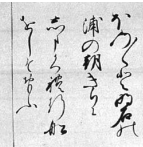 ほの〱と明石の
浦の朝きりに
しまかくれ行船
をしそおもふ